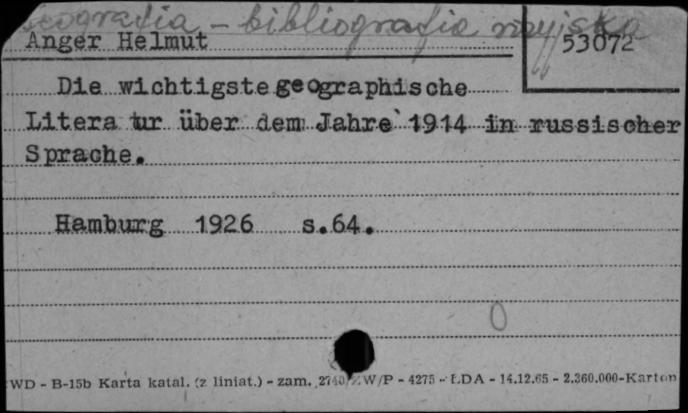 geografia - bibliografia rosyjska
Anger Helmut
53072
Die wichtigste geographische
Litera tur über dem Jahre 1914 in russischer
Sprache.
Hamburg 1926 s.64.
0
WD - B-15b Karta katal. (z liniat.) - zam. 2740/Z W/P - 4275 - LDA - 14.12.65 - 2.360.000-Karton